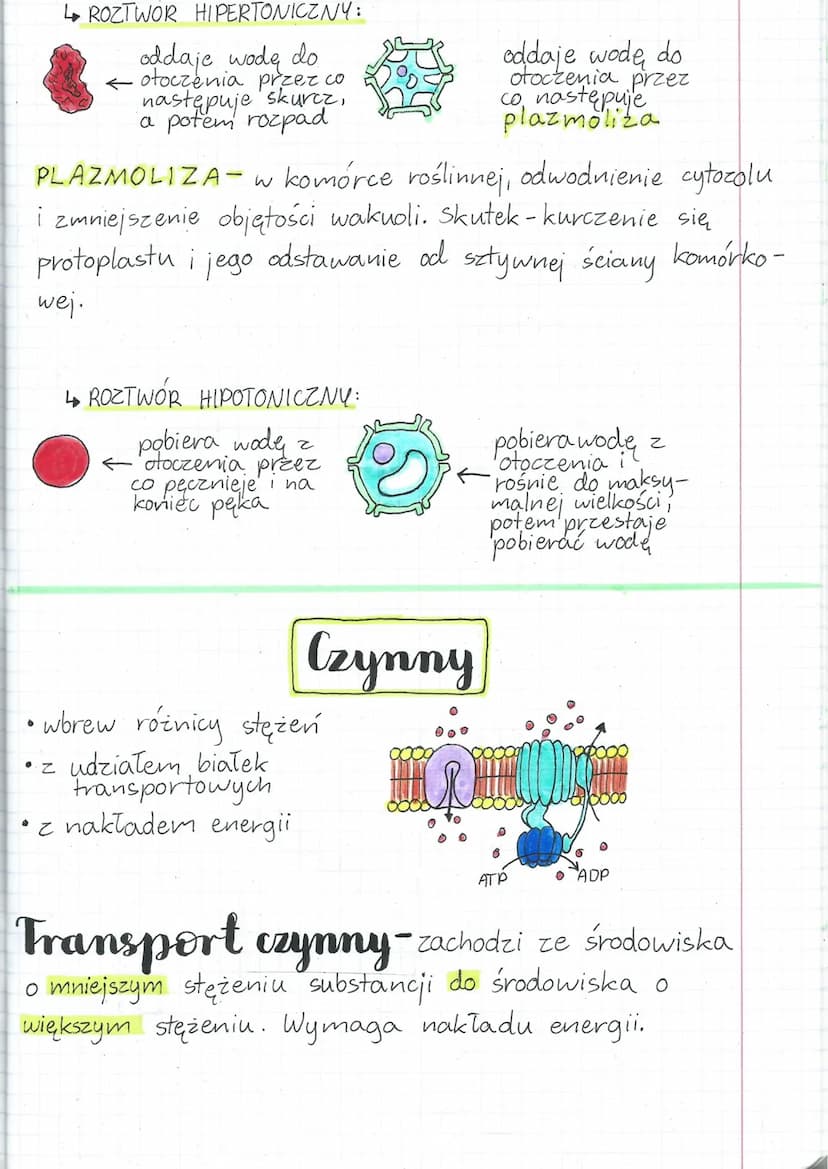 ↳ ROZTWÓR HIPERTONICZNY:
oddaje wodę do
← otoczenia przez co
następuje skurcz,
a potem rozpad
oddaje wodę do
otoczenia przez
co następuje
plazmoliza
PLAZMOLIZA- w komórce roślinnej, odwodnienie cytozolu
i zmniejszenie objętości wakuoli. Skutek - kurczenie się
protoplastu i jego odstawanie od sztywnej ściany komórko-
wej.
↳ ROZTWÓR HIPOTONICZNY:
pobiera wodę z
← otoczenia przez
co pęcznieje i na
koniec pęka
pobiera wodę z
← otoczenia i
rośnie do maksy-
malnej wielkości,
potem przestaje
pobierać wodę
Czynny
• wbrew różnicy stężeń
• z udziałem białek
transportowych
• z nakładem energii
ATP ADP
Transport czynny- zachodzi ze środowiska
o mniejszym stężeniu substancji do środowiska o
większym stężeniu. Wymaga nakładu energii.